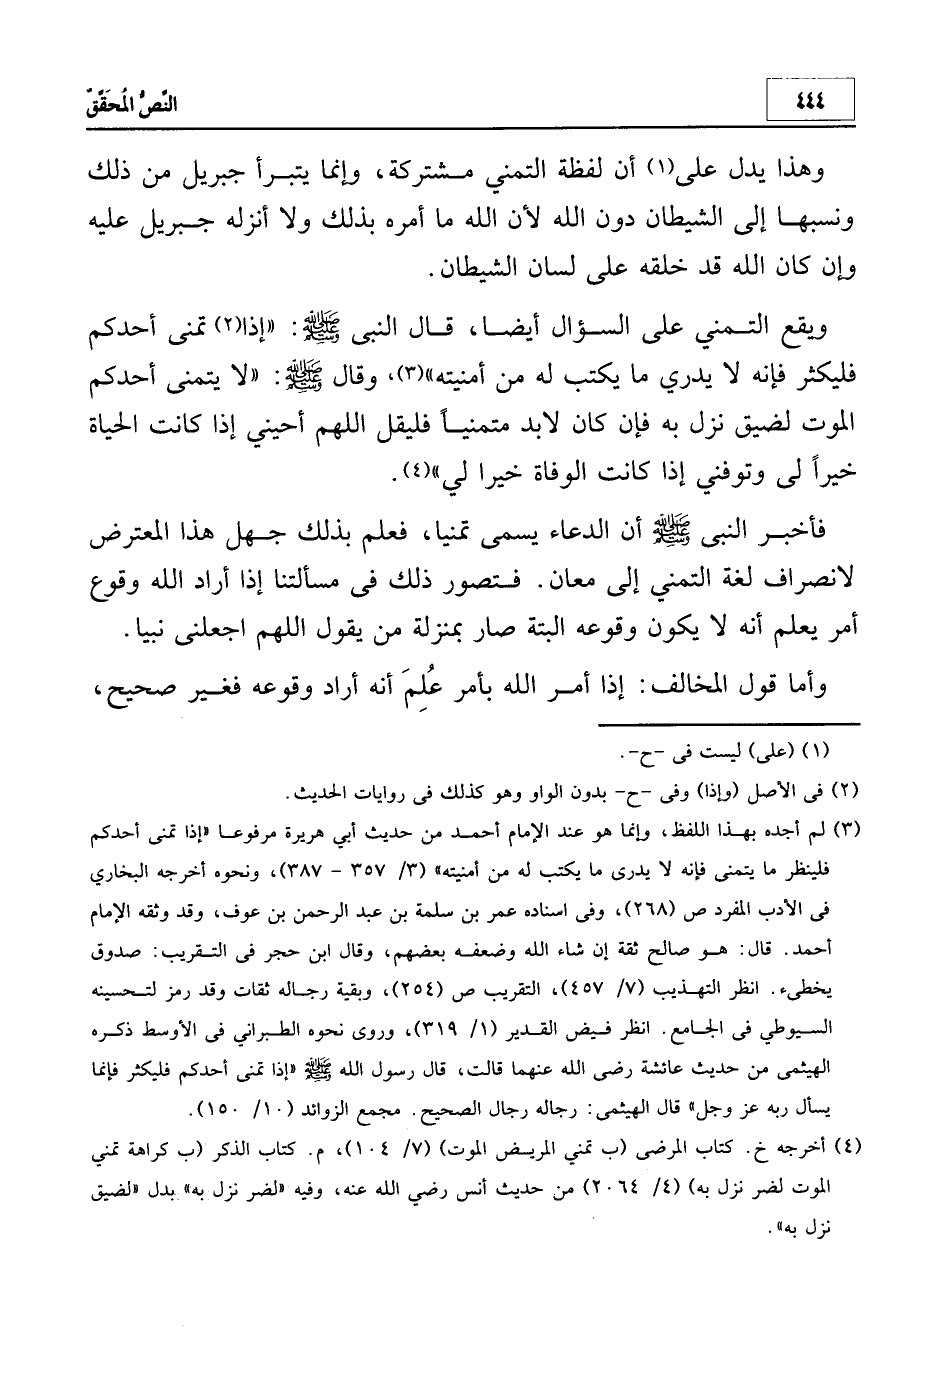 ٤٤٤
النَّصُّ المُحَقَّقْ
وهذا يدل على(١) أن لفظة التمني مشتركة، وإنما يتبرأ جبريل من ذلك
ونسبها إلى الشيطان دون الله لأن الله ما أمره بذلك ولا أنزله جبريل عليه
وإن كان الله قد خلقه على لسان الشيطان.
ويقع التمني على السؤال أيضا، قال النبى ﷺ: «إذا(٢) تمنى أحدكم
فليكثر فإنه لا يدري ما يكتب له من أمنيته»(٣)، وقال ﷺ: «لا يتمنى أحدكم
الموت لضيق نزل به فإن كان لابد متمنياً فليقل اللهم أحيني إذا كانت الحياة
خيراً لى وتوفني إذا كانت الوفاة خيرا لي»(٤).
فأخبر النبى ﷺ أن الدعاء يسمى تمنيا، فعلم بذلك جهل هذا المعترض
لانصراف لغة التمني إلى معان. فتصور ذلك فى مسألتنا إذا أراد الله وقوع
أمر يعلم أنه لا يكون وقوعه البتة صار بمنزلة من يقول اللهم اجعلنى نبيا.
وأما قول المخالف: إذا أمر الله بأمر عُلِمَ أنه أراد وقوعه فغير صحيح،
(١) (على) ليست فى -ح-.
(٢) فى الأصل (وإذا) وفى -ح- بدون الواو وهو كذلك فى روايات الحديث.
(٣) لم أجده بهذا اللفظ، وإنما هو عند الإمام أحمد من حديث أبي هريرة مرفوعا «إذا تمنى أحدكم
فلينظر ما يتمنى فإنه لا يدرى ما يكتب له من أمنيته» (٣/ ٣٥٧ - ٣٨٧)، ونحوه أخرجه البخاري
فى الأدب المفرد ص (٢٦٨)، وفى اسناده عمر بن سلمة بن عبد الرحمن بن عوف، وقد وثقه الإمام
أحمد. قال: هو صالح ثقة إن شاء الله وضعفه بعضهم، وقال ابن حجر فى التقريب: صدوق
يخطىء. انظر التهذيب (٧/ ٤٥٧)، التقريب ص (٢٥٤)، وبقية رجاله ثقات وقد رمز لتحسينه
السيوطي فى الجامع. انظر فيض القدير (١/ ٣١٩)، وروى نحوه الطبراني فى الأوسط ذكره
الهيثمى من حديث عائشة رضى الله عنهما قالت، قال رسول الله ﷺ «إذا تمنى أحدكم فليكثر فإنما
يسأل ربه عز وجل» قال الهيثمى: رجاله رجال الصحيح. مجمع الزوائد (١٠/ ١٥٠).
(٤) أخرجه خ. كتاب المرضى (ب تمني المريض الموت) (٧/ ١٠٤)، م. كتاب الذكر (ب كراهة تمني
الموت لضر نزل به) (٤/ ٢٠٦٤) من حديث أنس رضي الله عنه، وفيه «لضر نزل به» بدل «لضيق
نزل به».